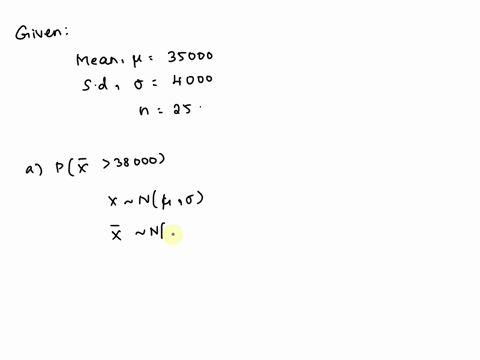 Given:
Mean, μ = 35000
S.d, σ = 4000
n = 25.
a) P(x̄ > 38000)
X ~ N(μ, σ)
x̄ ~ N(